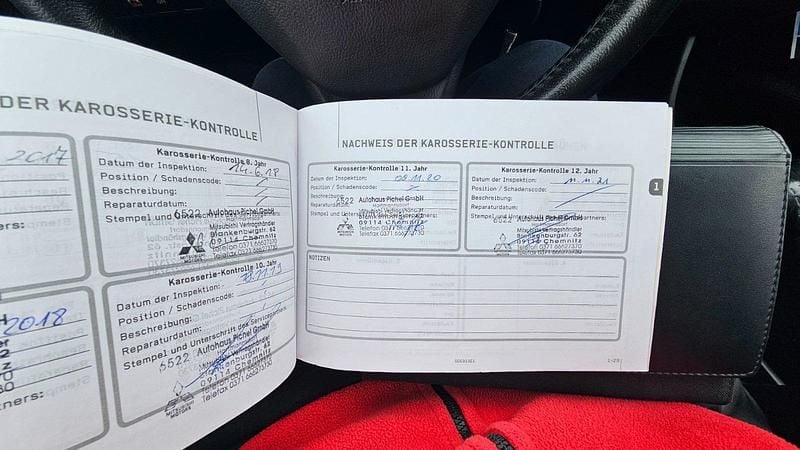 DER KAROSSERIE-KONTROLLE
2017
2018
Karosserie-Kontrolle 8. Jahr
Datum der Inspektion: 14.6.18
Position / Schadenscode:
Beschreibung:
Reparaturdatum:
6522 Autohaus Pichel GmbH
Mitsubishi Vertragshändler
Blankenburgstr. 62
09114 Chemnitz
Telefon 0371 66627370
Telefax 0371 66627373
Karosserie-Kontrolle 10. Jahr
Datum der Inspektion:
Position / Schadenscode:
Beschreibung:
Reparaturdatum:
Stempel und Unterschrift des
6522 Autohaus Pichel GmbH
Mitsubishi Vertragshändler
Blankenburgstr. 62
09114 Chemnitz
Telefon 0371 66627370
Telefax 0371 66627373
MITSUBISHI
MOTORS
NACHWEIS DER KAROSSERIE-KONTROLLE
Karosserie-Kontrolle 11. Jahr
Datum der Inspektion: 09.11.20
Position / Schadenscode:
Beschreibung:
Reparaturdatum:
6522 Autohaus Pichel GmbH
Mitsubishi Vertragshändler
Blankenburgstr. 62
09114 Chemnitz
Karosserie-Kontrolle 12. Jahr
Datum der Inspektion: 11.11.21
Position / Schadenscode:
Beschreibung:
Reparaturdatum:
6522 Autohaus Pichel GmbH
Mitsubishi Vertragshändler
Blankenburgstr. 62
09114 Chemnitz
NOTIZEN
1
1-29